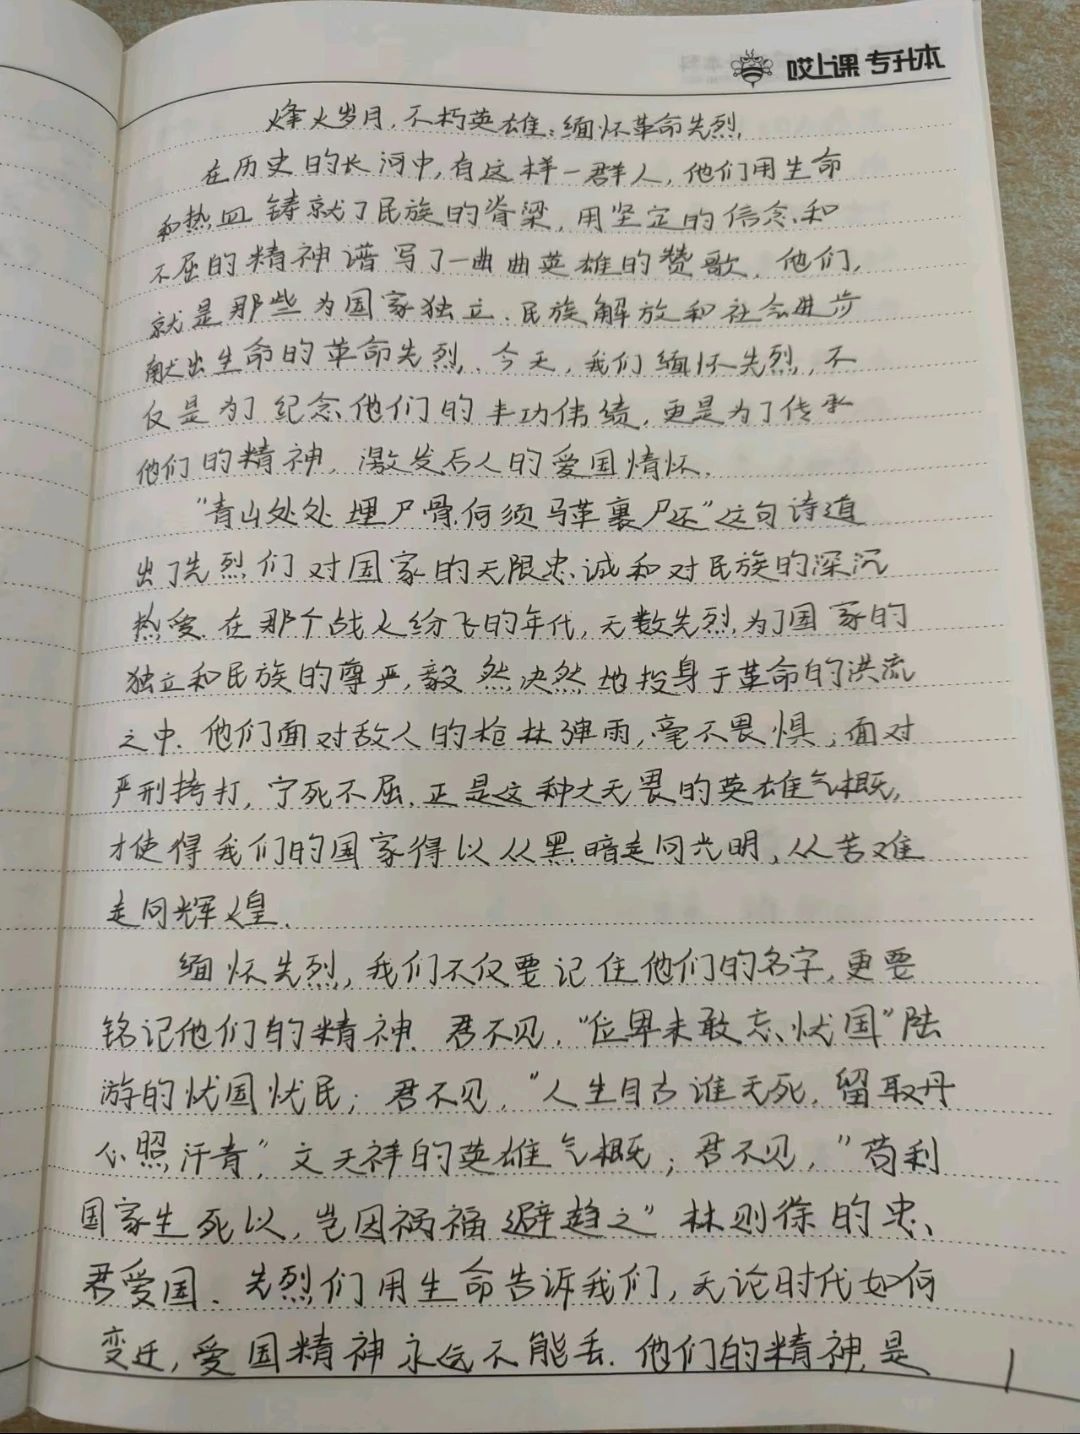 哎上课 专升本
烽火岁月,不朽英雄:缅怀革命先烈.
在历史的长河中,有这样一群人,他们用生命
和热血铸就了民族的脊梁,用坚定的信念和
不屈的精神谱写了一曲曲英雄的赞歌.他们,
就是那些为国家独立.民族解放和社会进步
献出生命的革命先烈.今天,我们缅怀先烈,不
仅是为了纪念他们的丰功伟绩,更是为了传承
他们的精神,激发后人的爱国情怀.
"青山处处埋尸骨,何须马革裹尸还"这句诗道
出了先烈们对国家的无限忠诚和对民族的深沉
热爱.在那个战火纷飞的年代,无数先烈,为了国家的
独立和民族的尊严,毅然决然地投身于革命的洪流
之中.他们面对敌人的枪林弹雨,毫不畏惧;面对
严刑拷打,宁死不屈.正是这种大无畏的英雄气概,
才使得我们的国家得以从黑暗走向光明,从苦难
走向辉煌.
缅怀先烈,我们不仅要记住他们的名字,更要
铭记他们的精神.君不见,"位卑未敢忘忧国"陆
游的忧国忧民;君不见,"人生自古谁无死,留取丹
心照汗青",文天祥的英雄气概;君不见,"苟利
国家生死以,岂因祸福避趋之"林则徐的忠
君爱国.先烈们用生命告诉我们,无论时代如何
变迁,爱国精神永远不能丢.他们的精神,是
1